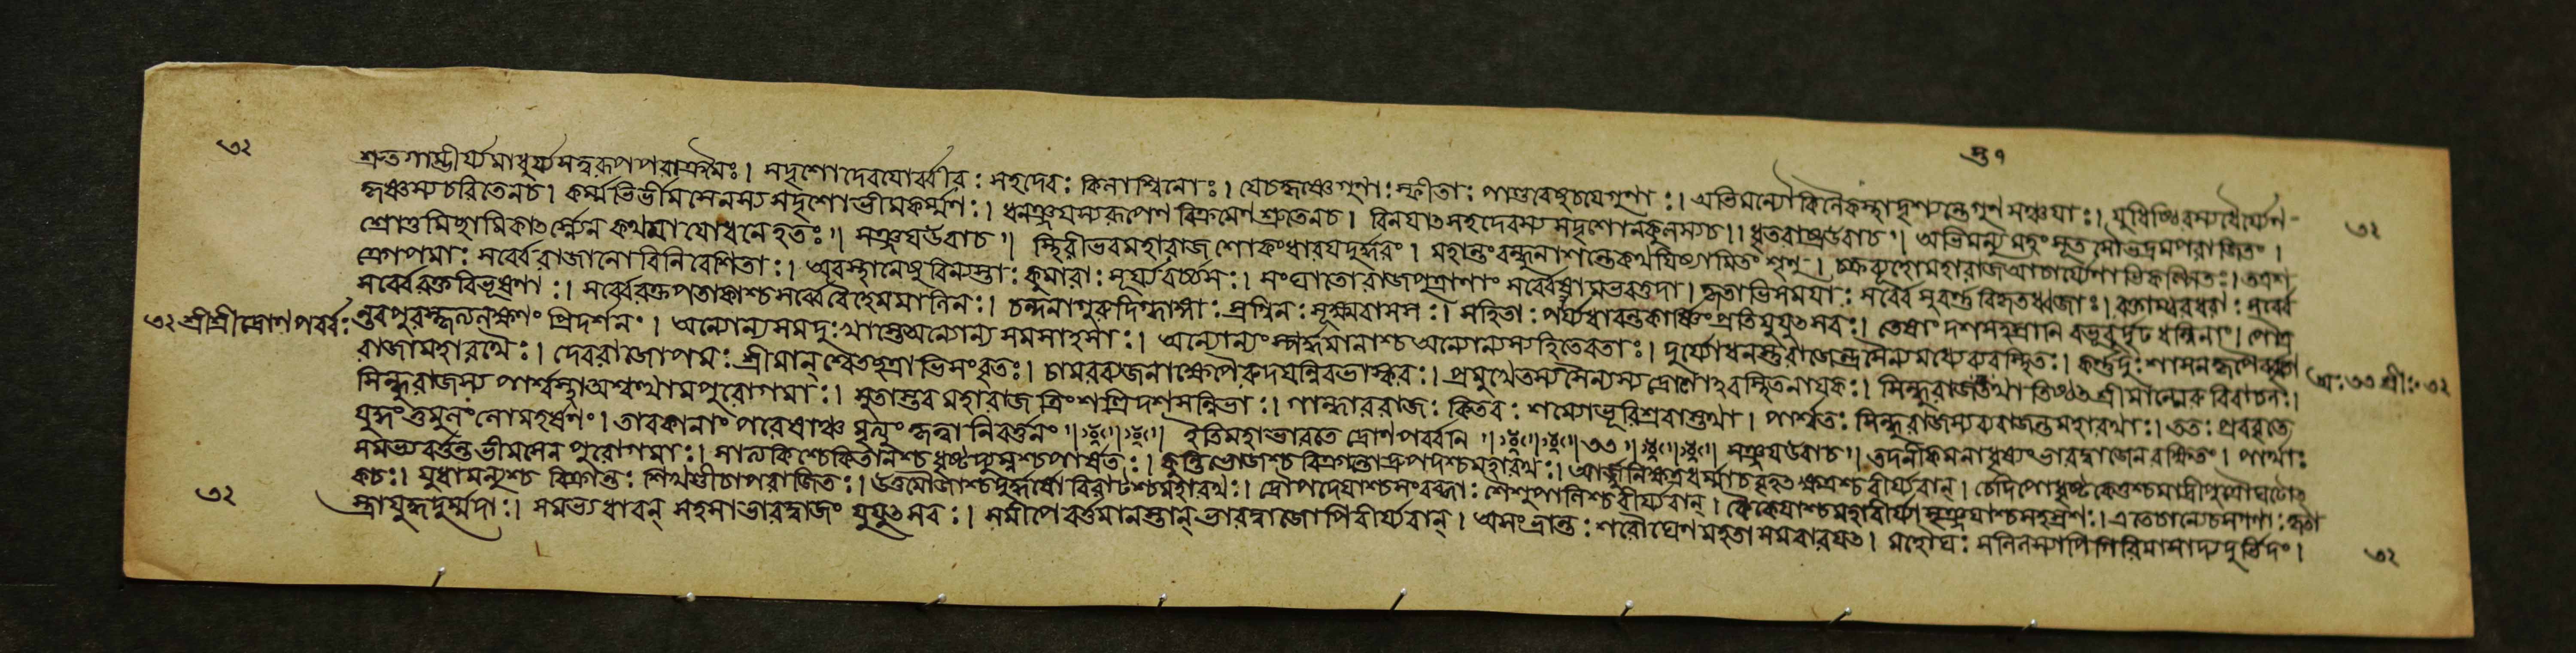 ৩২
শ্রুতগাম্ভীর্য্যমাধুর্য্যসত্ত্বরূপপরাক্রমৈঃ। সদৃশোদেবযোর্ব্বীরঃ সহদেবঃ কিলাশ্বিনোঃ। যেচকৃষ্ণেগুণাঃ স্ফীতাঃ পাণ্ডবেষুচযেগুণাঃ। অভিমন্যৌকিলৈকস্থাদৃশ্যন্তেগুণসঞ্চযাঃ। যুধিষ্ঠিরস্যধৈর্য্যেণ
কৃষ্ণস্যচরিতেনচ। কর্ম্মভির্ভীমসেনস্যসদৃশোভীমকর্ম্মণঃ। ধনঞ্জযস্যরূপেণ বিক্রমেণ শ্রুতেনচ। বিনযাৎসহদেবস্যসদৃশোনকুলস্যচ। ধৃতরাষ্ট্রউবাচ। অভিমন্যুমহংসূত সৌভদ্রমপরাজিতং।
শ্রোতুমিচ্ছামিকার্ৎস্ন্যেন কথমাযোধনেহতঃ। সঞ্জযউবাচ। স্থিরীভবমহারাজ শোকংধারযদুর্দ্ধরং। মহান্তংবন্ধুনাশন্তেকথযিষ্যামিতংশৃণু। চক্রব্যূহোমহারাজআচার্য্যেণাভিকল্পিতঃ। তত্রশ
ক্রোপমাঃ সর্ব্বেরাজানোবিনিবেশিতাঃ। অবস্থানেষুবিন্যস্তাঃ কুমারাঃ সূর্য্যবর্চ্চসঃ। সংঘাতোরাজপুত্রাণাং সর্ব্বেষামভবত্তদা। কৃতাভিসমযাঃ সর্ব্বেসুবর্ণবিকৃতধ্বজাঃ। রক্তাম্বরধরাঃ সর্ব্বে
সর্ব্বেরক্তবিভূষণাঃ। সর্ব্বেরক্তপতাকাশ্চসর্ব্বেবৈহেমমালিনঃ। চন্দনাগুরুদিগ্ধাঙ্গাঃ স্রগ্বিনঃ সূক্ষ্মবাসসঃ। সহিতাঃ পর্য্যধাবন্তকার্ষ্ণিংপ্রতিযুযুৎসবঃ। তেষাংদশসহস্রাণিবভূবুর্দৃঢধন্বিনাং। পৌত্র
৩২ শ্রীশ্রীদ্রোণপর্ব্বঃ
ন্তবপুরস্কৃত্যলক্ষ্মণং প্রিদর্শনং। অন্যোন্যসমদুঃখাস্তেঅন্যোন্যসমসাহসাঃ। অন্যোন্যংস্পর্দ্ধমানাশ্চঅন্যোন্যস্যহিতেরতাঃ। দুর্য্যোধনস্তুরাজেন্দ্রসৈন্যমধ্যেব্যবস্থিতঃ। কর্ণদুঃশাসনকৃপৈর্বৃতো
রাজামহারথৈঃ। দেবরাজোপমঃ শ্রীমান্শ্বেতচ্ছত্রাভিসংবৃতঃ। চামরব্যজনাক্ষেপৈরুদযন্নিবভাস্করঃ। প্রমুখেতস্যসৈন্যস্যদ্রোণোঽবস্থিতনাযকঃ। সিন্ধুরাজস্তথাতিষ্ঠৎশ্রীমান্মেরুরিবাচলঃ।
অঃ ৩৩ শ্রীঃ ৩২
সিন্ধুরাজস্য পার্শ্বস্থাঅশ্বত্থামপুরোগমাঃ। সুতাস্তবমহারাজত্রিংশত্রিদশসন্নিভাঃ। গান্ধাররাজঃ কিতবঃ শল্যোভূরিশ্রবাস্তথা। পার্শ্বতঃ সিন্ধুরাজস্যব্যরাজন্তমহারথাঃ। ততঃ প্রববৃতে
যুদ্ধংতুমুলংলোমহর্ষণং। তাবকানাং পরেষাঞ্চ মৃত্যুংকৃত্বানিবর্ত্তনং। ইতিমহাভারতে দ্রোণপর্ব্বণি ৩৩ সঞ্জযউবাচ। তদনীকমনাধৃষ্যংভারদ্বাজেনরক্ষিতং। পার্থাঃ
সমভ্যবর্ত্তন্তভীমসেনপুরোগমাঃ। সাত্যকিশ্চেকিতানশ্চধৃষ্টদ্যুম্নশ্চপার্ষতঃ। কুন্তিভোজশ্চবিক্রান্তোদ্রুপদশ্চমহারথঃ। আর্জ্জুনিঃক্ষত্রধর্ম্মাচবৃহৎক্ষত্রশ্চবীর্য্যবান্। চেদিপোধৃষ্টকেতুশ্চমাদ্রীপুত্রৌঘটোৎ
কচঃ। যুধামন্যুশ্চ বিক্রান্তঃ শিখণ্ডীচাপরাজিতঃ। উত্তমৌজাশ্চদুর্দ্ধর্ষোবিরাটশ্চমহারথঃ। দ্রৌপদেযাশ্চসংরব্ধাঃ শৈশুপালিশ্চবীর্য্যবান্। কৈকেযাশ্চমহাবীর্য্যাঃসৃঞ্জযাশ্চসহস্রশঃ। এতেচান্যেচসগণাঃ কৃতা
৩২
স্ত্রাযুদ্ধদুর্ম্মদাঃ। সমভ্যধাবন্ সহসাভারদ্বাজং যুযুৎসবঃ। সমীপেবর্ত্তমানাংস্তান্ভারদ্বাজোপিবীর্য্যবান্। অসংভ্রান্তঃ শরৌঘেণমহতাসমবারযৎ। মহৌঘঃ সলিলস্যাপিগিরিমাসাদ্যদুর্ভিদং।
৩২